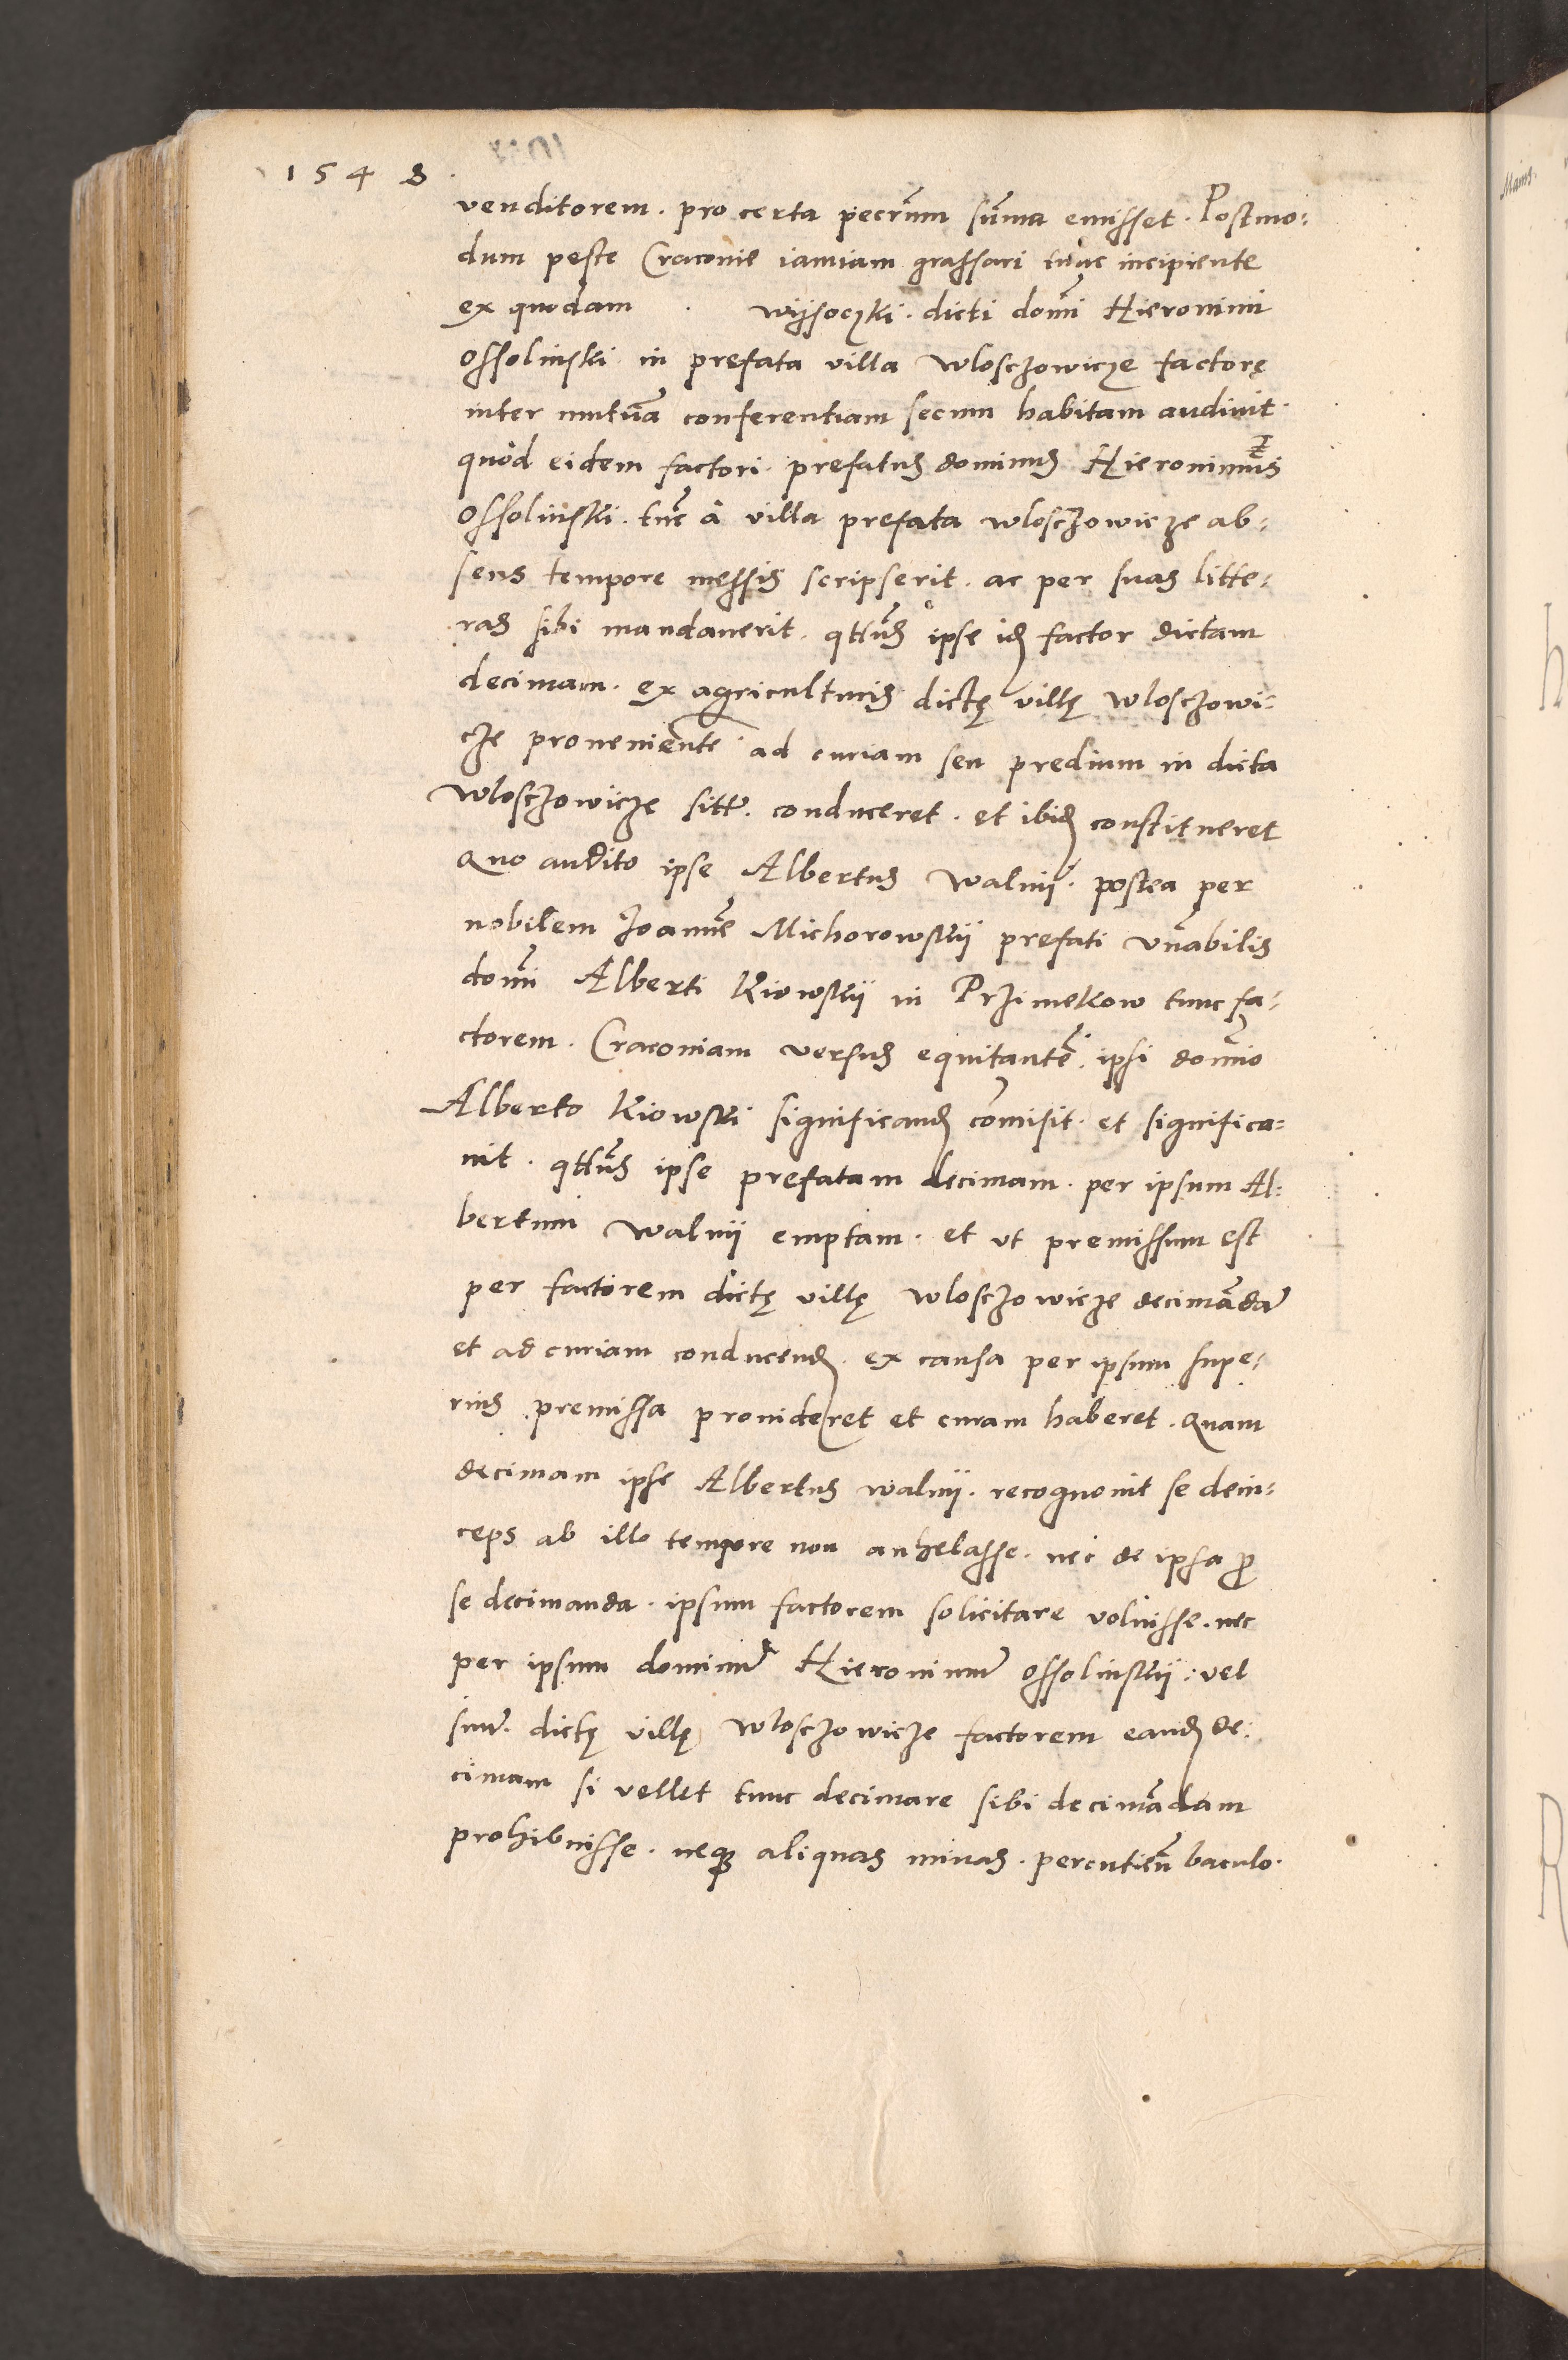 1548
venditorem. pro certa pecunium summa emisset. Postmo:
dum peste Cracovie iamiam grassari tunc incipiente
ex quodam . Wijsoczki. dicti domi Hieronimi
Ossolinski in prefata villa Wlosczowicze factorę
inter mutuã conferentiam secum habitam audivit.
quòd eidem factori. prefatus dominus Hieronimus
Ossolinski. tuc à villa prefata Wloschowicze ab:
sens tempore messis scripserit. ac per suas litte:
ras sibi mandaverit. qttus ipse id factor dictam
decimam. ex agriculturis dictę villę Wloschowi:
cze proveniente ad curiam seu predium in dicta
Wloschowicze sitt. conduceret. et ibid constitueret
Quo audito ipse Albertus Walnij. postea per
nobilem Joanne Michorowskij prefati vnabilis
domi Alberti Kiowskij in Przimekow tunc fa:
ctorem. Cracoviam versus equitante. ipsi domio
Alberto Kiowski significand comisit. et significa:
vit. qttus ipse prefatam decimam. per ipsum Al:
bertum Walnij emptam. et vt premissum est
per factorem dictę villę Wloschowicze decimãda
et ad curiam conducend. ex causa per ipsum supe:
rius premissa provideret et curam haberet. Quam
decimam ipse Albertus Walnij. recognovit se dein:
ceps ab illo tempore non anhelasse. nec de ipsa p
se decimanda. ipsum factorem solicitare voluisse. nec
per ipsum dominu Hieronimu Ossolinskij: vel
suu. dictę villę Wloschowicze factorem eand de:
cimam si vellet tunc decimare sibi decimãdam
prohibuisse. neque aliquas minas. percutiend baculo.